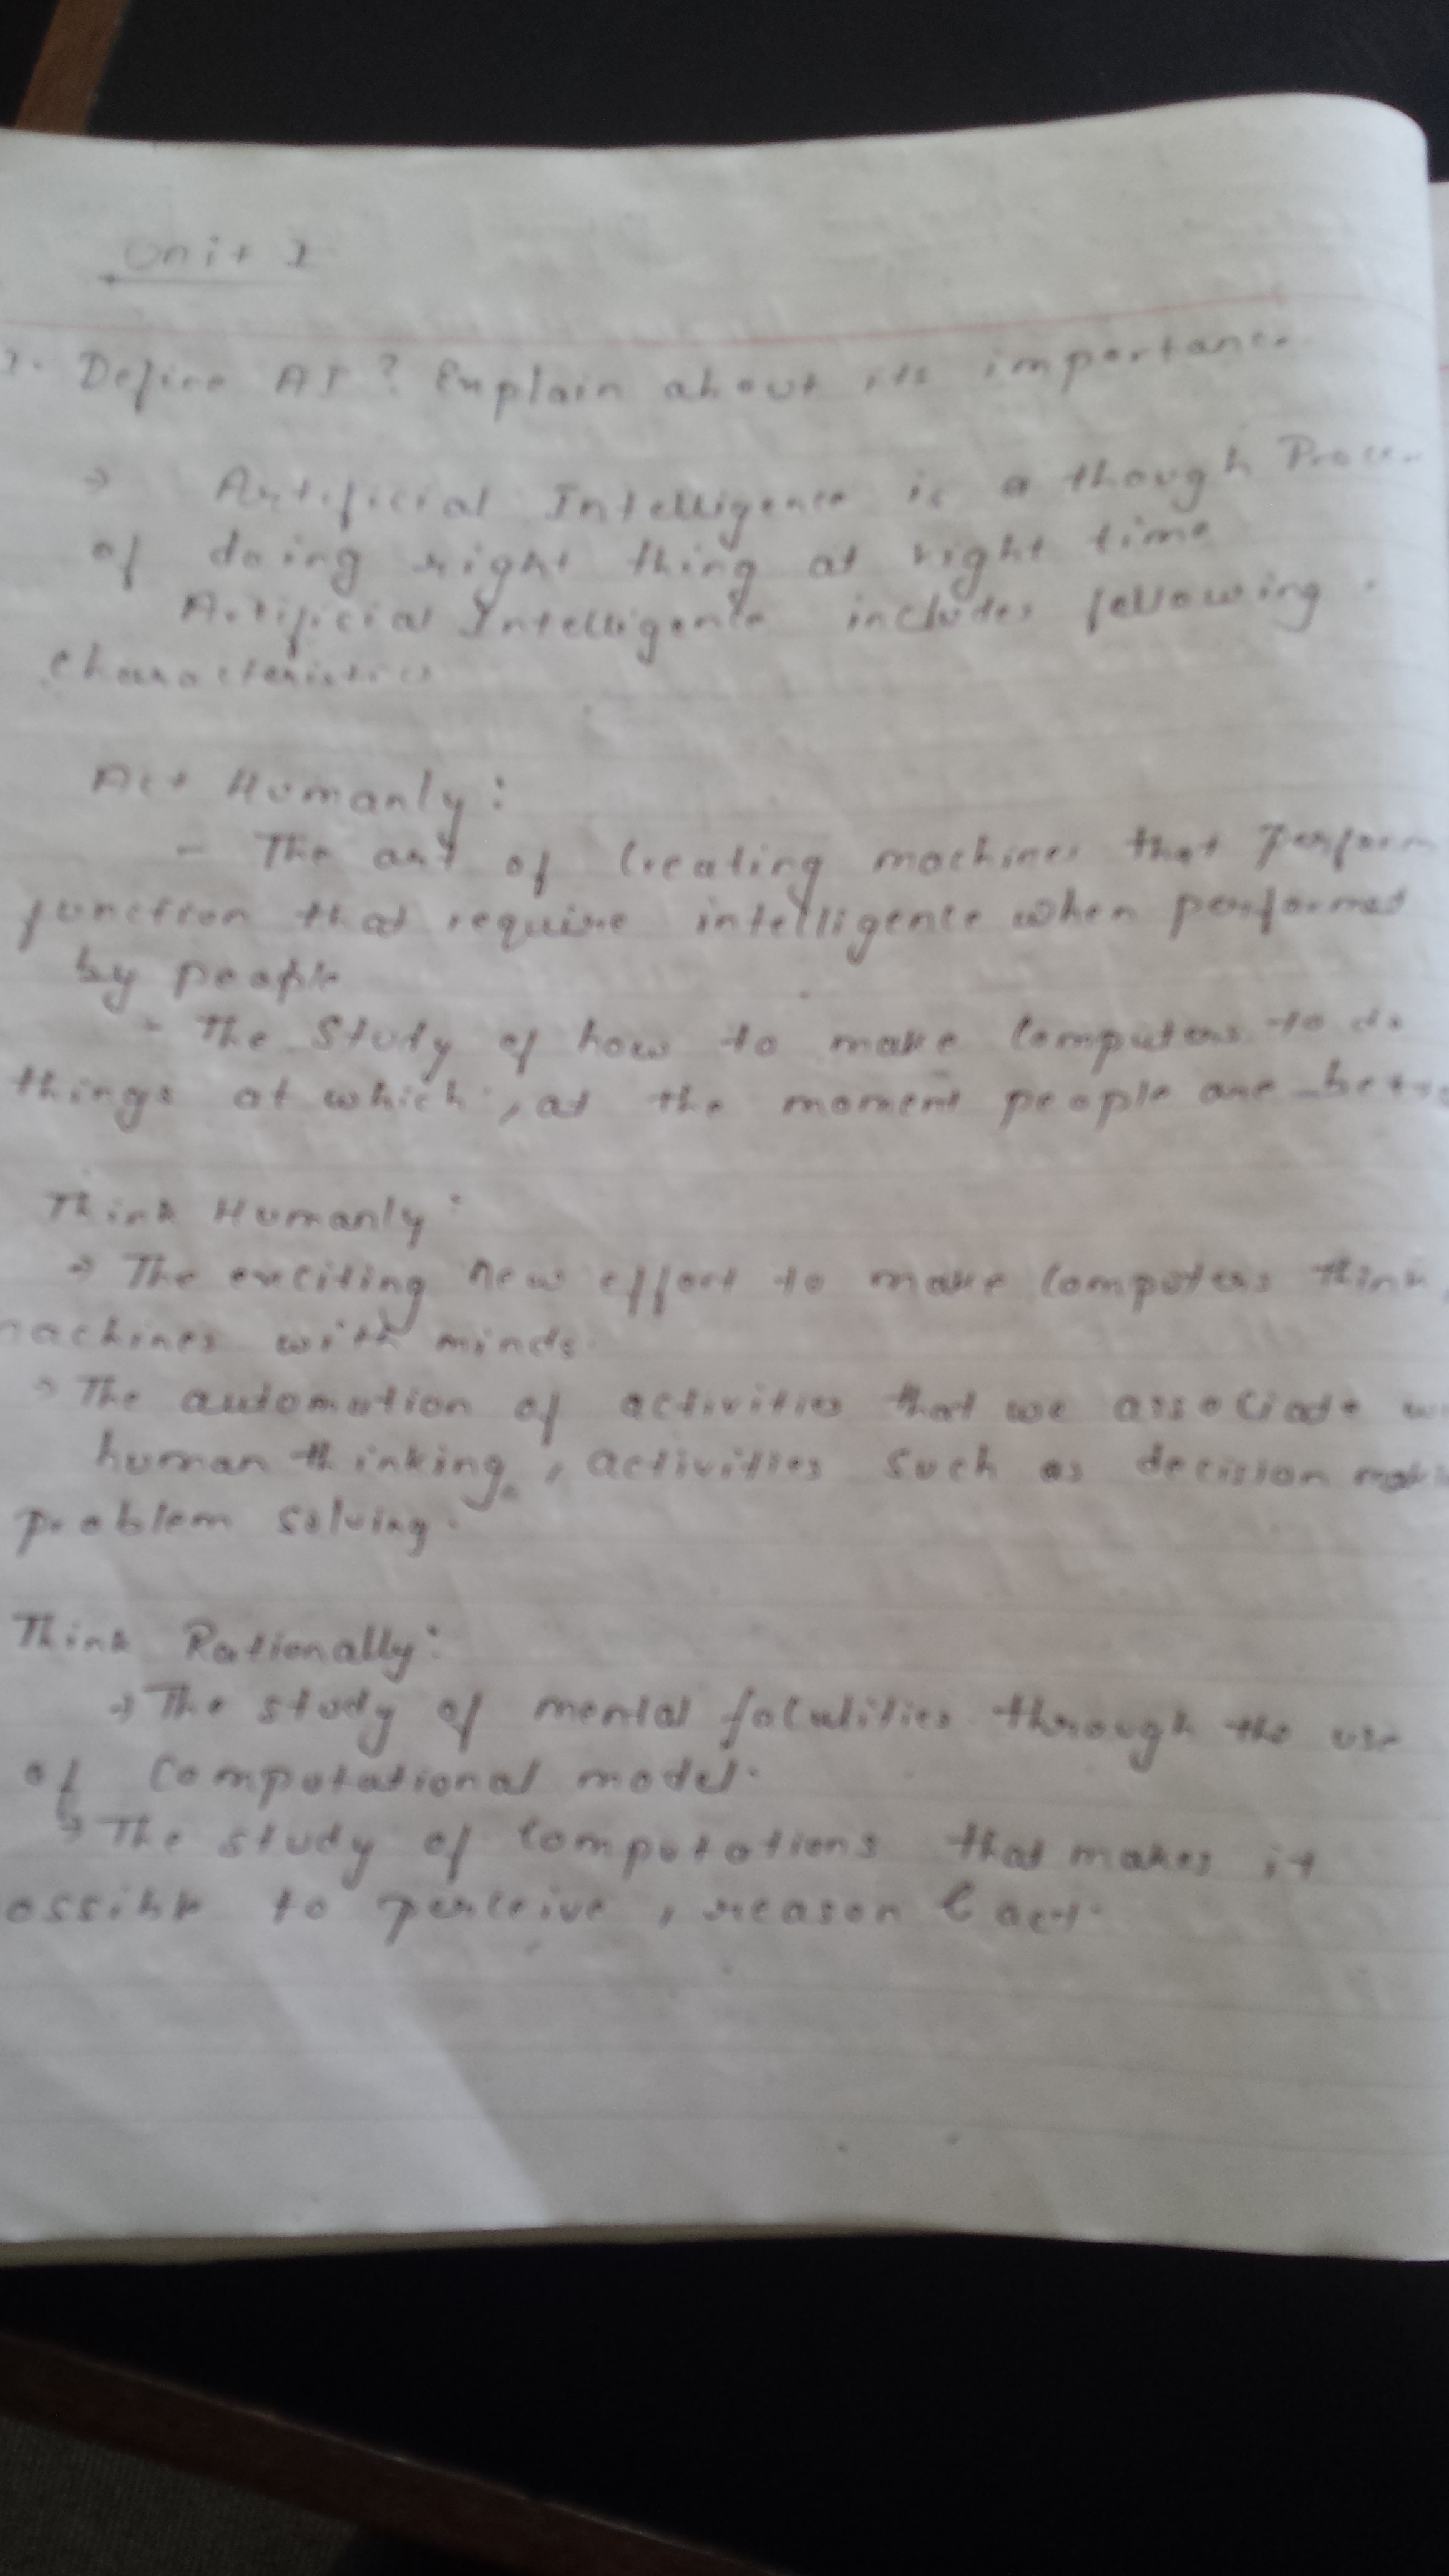 Unit I
1. Define AI? Explain about its importance
→ Artificial Intelligence is a though Proce
of doing right thing at right time
Artificial Intelligence includes following
characteristics
Act Humanly:
- The art of Creating machines that perform
function that require intelligence when performed
by people
- The Study of how to make Computers to do
things at which, at the moment people are bette
Think Humanly:
→ The exciting new effort to make Computers think,
machines with minds.
→ The automation of activities that we associate w
human thinking, activities such as decision maki
problem solving.
Think Rationally:
→ The study of mental faculities through the use
of Computational model.
→ The study of Computations that makes it
ossible to perceive, reason & act.